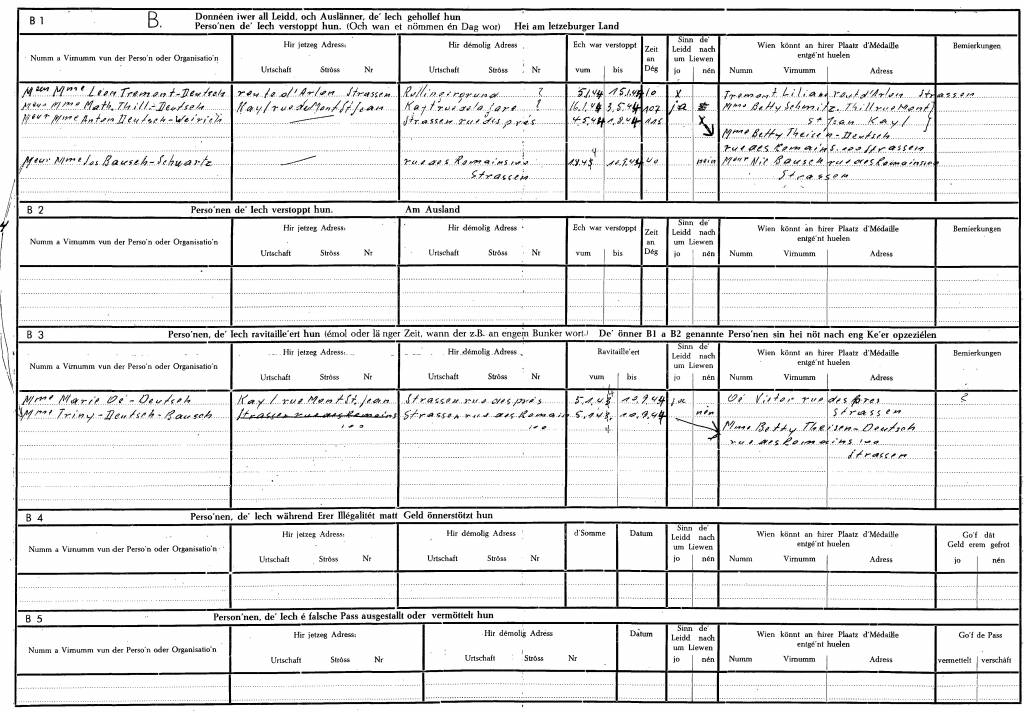 B 1 B. Donnéen iwer all Leidd, och Auslänner, de' Iech gehollef hun
Perso'nen de' Iech verstoppt hun. (Och wan et nömmen én Dag wor) Hei am letzeburger Land
Numm a Virnumm vun der Perso'n oder Organisatio'n
Hir jetzeg Adress:
Urtschaft Ströss Nr
Hir démolig Adress
Urtschaft Ströss Nr
Ech war verstoppt
vum bis
Zeit an Dég
Sinn de' Leidd nach um Liewen
jo nén
Wien könnt an hirer Plaatz d'Médaille entgé'nt huelen
Numm Virnumm Adress
Bemierkungen
Meur Mme Léon Tremont-Deutsch route d'Arlon Strassen Rollingergrund ? 5.1.44 15.1.44 10 X Tremont Lilian rout d'Arlon Strassen
Meur Mme Math. Thill-Deutsch Kayl rue du Mont St Jean Kayl rue de la gare ? 16.1.44 3.5.44 107 ja Mme Betty Schmitz-Thill rue Mont
St Jean Kayl
Meur Mme Anton Deutsch-Weirich Strassen rue des prés 4.5.44 1.9.44 X
Mme Betty Theisen-Deutsch
rue des Romains 100 Strassen
Meur Mme Jos Bausch-Schwartz rue des Romains 100 10.9.44 40 nein Meur Nic Bausch rue des Romains
Strassen Strassen
B 2 Perso'nen de' Iech verstoppt hun. Am Ausland
Numm a Virnumm vun der Perso'n oder Organisatio'n
Hir jetzeg Adress:
Urtschaft Ströss Nr
Hir démolig Adress
Urtschaft Ströss Nr
Ech war verstoppt
vum bis
Zeit an Dég
Sinn de' Leidd nach um Liewen
jo nén
Wien könnt an hirer Plaatz d'Médaille entgé'nt huelen
Numm Virnumm Adress
Bemierkungen
B 3 Perso'nen, de' Iech ravitaille'ert hun (émol oder länger Zeit, wann der z.B. an engem Bunker wort.) De' önner B1 a B2 genannte Perso'nen sin hei nöt nach eng Ke'er opzeziélen
Numm a Virnumm vun der Perso'n oder Organisatio'n
Hir jetzeg Adress:
Urtschaft Ströss Nr
Hir démolig Adress
Urtschaft Ströss Nr
Ravitaille'ert
vum bis
Sinn de' Leidd nach um Liewen
jo nén
Wien könnt an hirer Plaatz d'Médaille entgé'nt huelen
Numm Virnumm Adress
Bemierkungen
Mme Marie Oé-Deutsch Kayl rue Mont St. Jean Strassen rue des prés 10.9.44 ja Oé Victor rue des pres
Strassen
Mme Triny-Deutsch-Bausch Strassen rue des Romains 100 Strassen rue des Romain 100 10.9.44 nén
Mme Betty Theisen-Deutsch
rue des Romains 100
Strassen
B 4 Perso'nen, de' Iech während Erer Illégalitét matt Geld önnerstötzt hun
Numm a Virnumm vun der Perso'n oder Organisatio'n
Hir jetzeg Adress:
Urtschaft Ströss Nr
Hir démolig Adress
Urtschaft Ströss Nr
d'Somme
Datum
Sinn de' Leidd nach um Liewen
jo nén
Wien könnt an hirer Plaatz d'Médaille entgé'nt huelen
Numm Virnumm Adress
Go'f dât Geld erem gefrot
jo nén
B 5 Person'nen, de' Iech é falsche Pass ausgestallt oder vermöttelt hun
Numm a Virnumm vun der Perso'n oder Organisatio'n
Hir jetzeg Adress:
Urtschaft Ströss Nr
Hir démolig Adress
Urtschaft Ströss Nr
Dâtum
Sinn de' Leidd nach um Liewen
jo nén
Wien könnt an hirer Plaatz d'Médaille entgé'nt huelen
Numm Virnumm Adress
Go'f de Pass
vermettelt verschâft